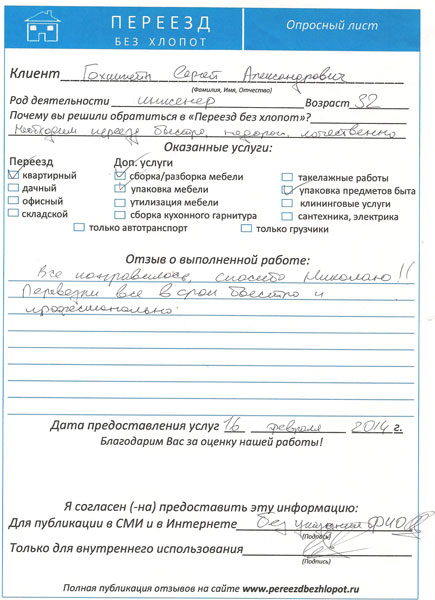 ПЕРЕЕЗД
БЕЗ ХЛОПОТ
Опросный лист
Клиент Александрович
(Фамилия, Имя, Отчество)
Род деятельности инженер Возраст 32
Почему вы решили обратиться в «Переезд без хлопот»?
Необходим переезд быстро, недорого, качественно
Оказанные услуги:
Переезд Доп. услуги
квартирный сборка/разборка мебели такелажные работы
дачный упаковка мебели упаковка предметов быта
офисный утилизация мебели клининговые услуги
складской сборка кухонного гарнитура сантехника, электрика
только автотранспорт только грузчики
Отзыв о выполненной работе:
Все понравилось, спасибо Николаю!!
Перевезли все в срок быстро и
профессионально.
Дата предоставления услуг 16 февраля 2014 г.
Благодарим Вас за оценку нашей работы!
Я согласен (-на) предоставить эту информацию:
Для публикации в СМИ и в Интернете без указания ФИО
(Подпись)
Только для внутреннего использования
(Подпись)
Полная публикация отзывов на сайте www.pereezdbezhlopot.ru